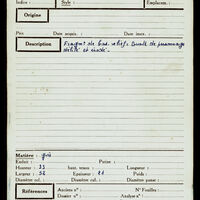 Indice : Style : Emplacem. :
Origine
Prix Date acquis. : Date inv. :
Description Fragment de bas relief. Buste de personnage
Matière : grès
Entier : Patine :
Hauteur : 33 haut. tenon : Longueur :
Largeur : 52 Epaisseur : 21 Poids :
Diamètre : Diamètre col. : Diamètre panse :
Références Ancien n° : N° Fouilles :
Dossier n° : Analyse n° :